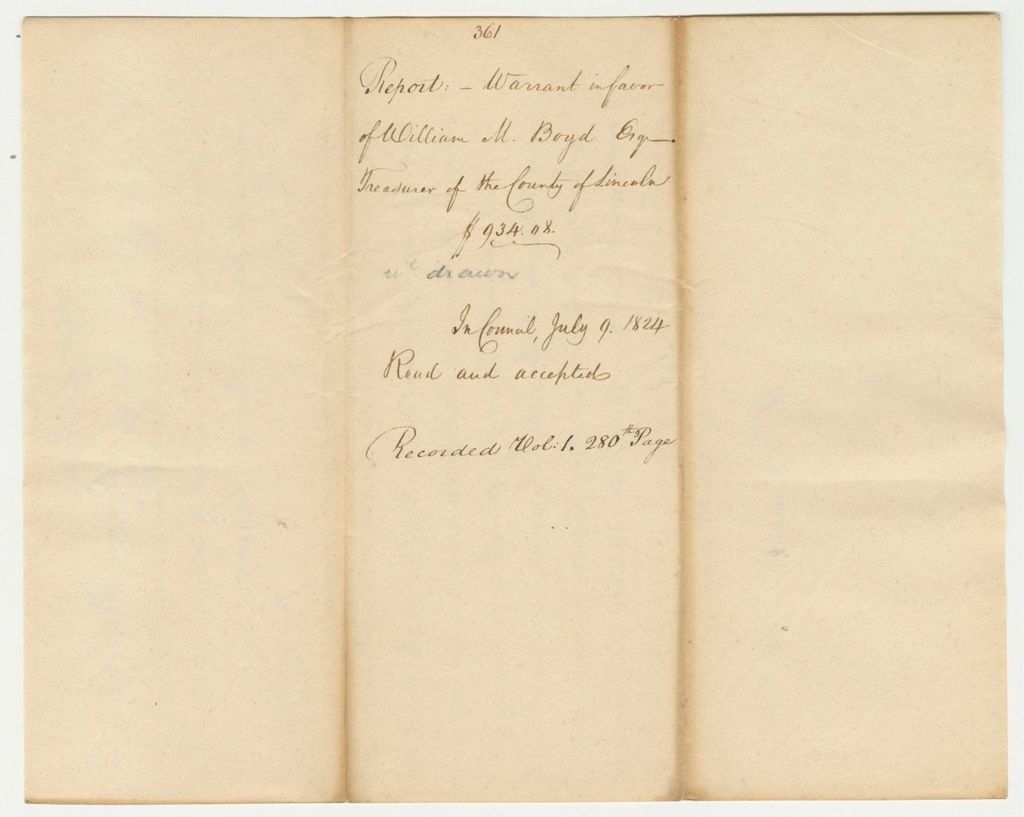 361
Report: - Warrant in favor
of William M. Boyd Esqr
Treasurer of the County of Lincoln
$934.08.
wt drawn
In Council, July 9. 1824
Read and accepted
Recorded Vol: 1. 280th Page